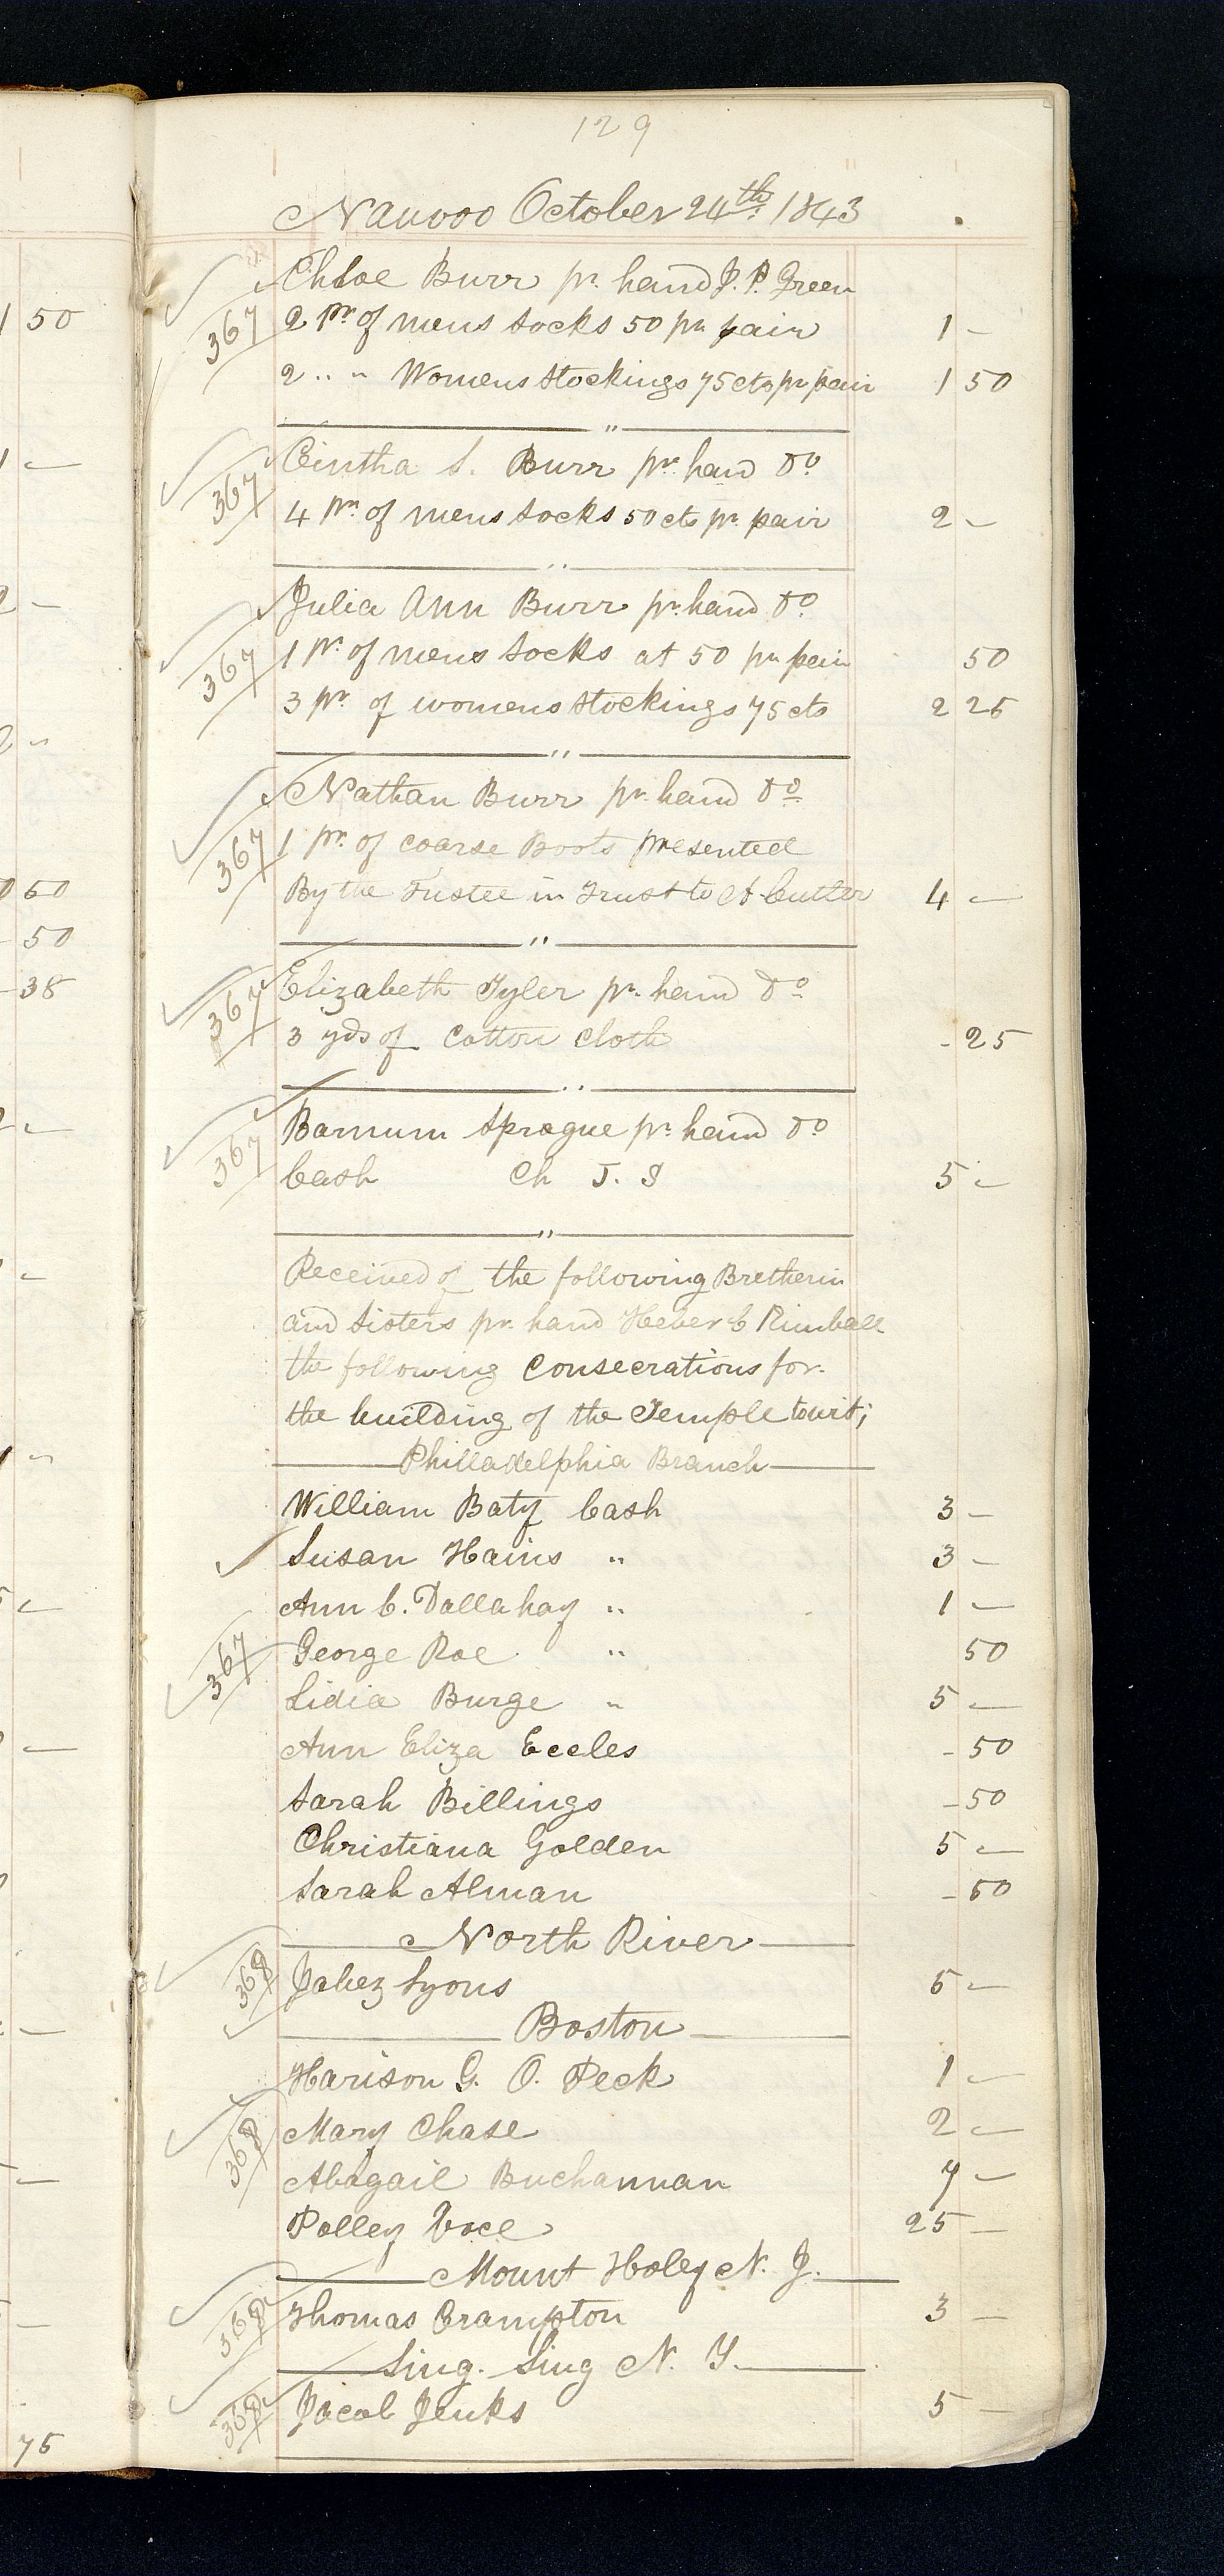 129
Nauvoo October 24th 1843
Chloe Burr pr. hand J. P. Green
367 2 pr of mens socks 50 pr pair 1 -
2 " " Womens stockings 75 cts pr pair 1 50
"
Cintha S. Burr pr. hand Do
367 4 pr. of mens socks 50 cts pr. pair 2 -
"
Julia Ann Burr pr. hand Do
367 1 pr. of mens socks at 50 pr pair 50
3 pr. of womens stockings 75 cts 2 25
"
Nathan Burr pr. hand Do
367 1 pr. of coarse Boots presented
By the Trustee in Trust to A Cutler 4 -
"
Elizabeth Tyler pr. hand Do
367 3 yds of Cotton Cloth - 25
"
Barnum Sprague pr. hand Do
367 Cash Ch J. S 5 -
"
Received of the following Bretherin
and Sisters pr. hand Heber C Kimball
the following Consecrations for
the building of the Temple towit;
Philladelphia Branch
William Baty Cash 3 -
Susan Hains " 3 -
Ann C. Dallahay " 1 -
367 George Roe " 50
Lidia Burge " 5 -
Ann Eliza Eccles - 50
Sarah Billings - 50
Christiana Golden 5 -
Sarah Alman - 50
North River
368 Jabez Lyons 5 -
Boston
Harison G. O. Peck 1 -
368 Mary Chase 2 -
Abagail Buchannan 7 -
Polley Voce 25 -
Mount Holey N. J.
368 Thomas Crampton 3 -
Sing. Sing N. Y.
368 Jacob Jenks 5 -
1 50
1 -
2 -
2 "
50
50
- 38
75